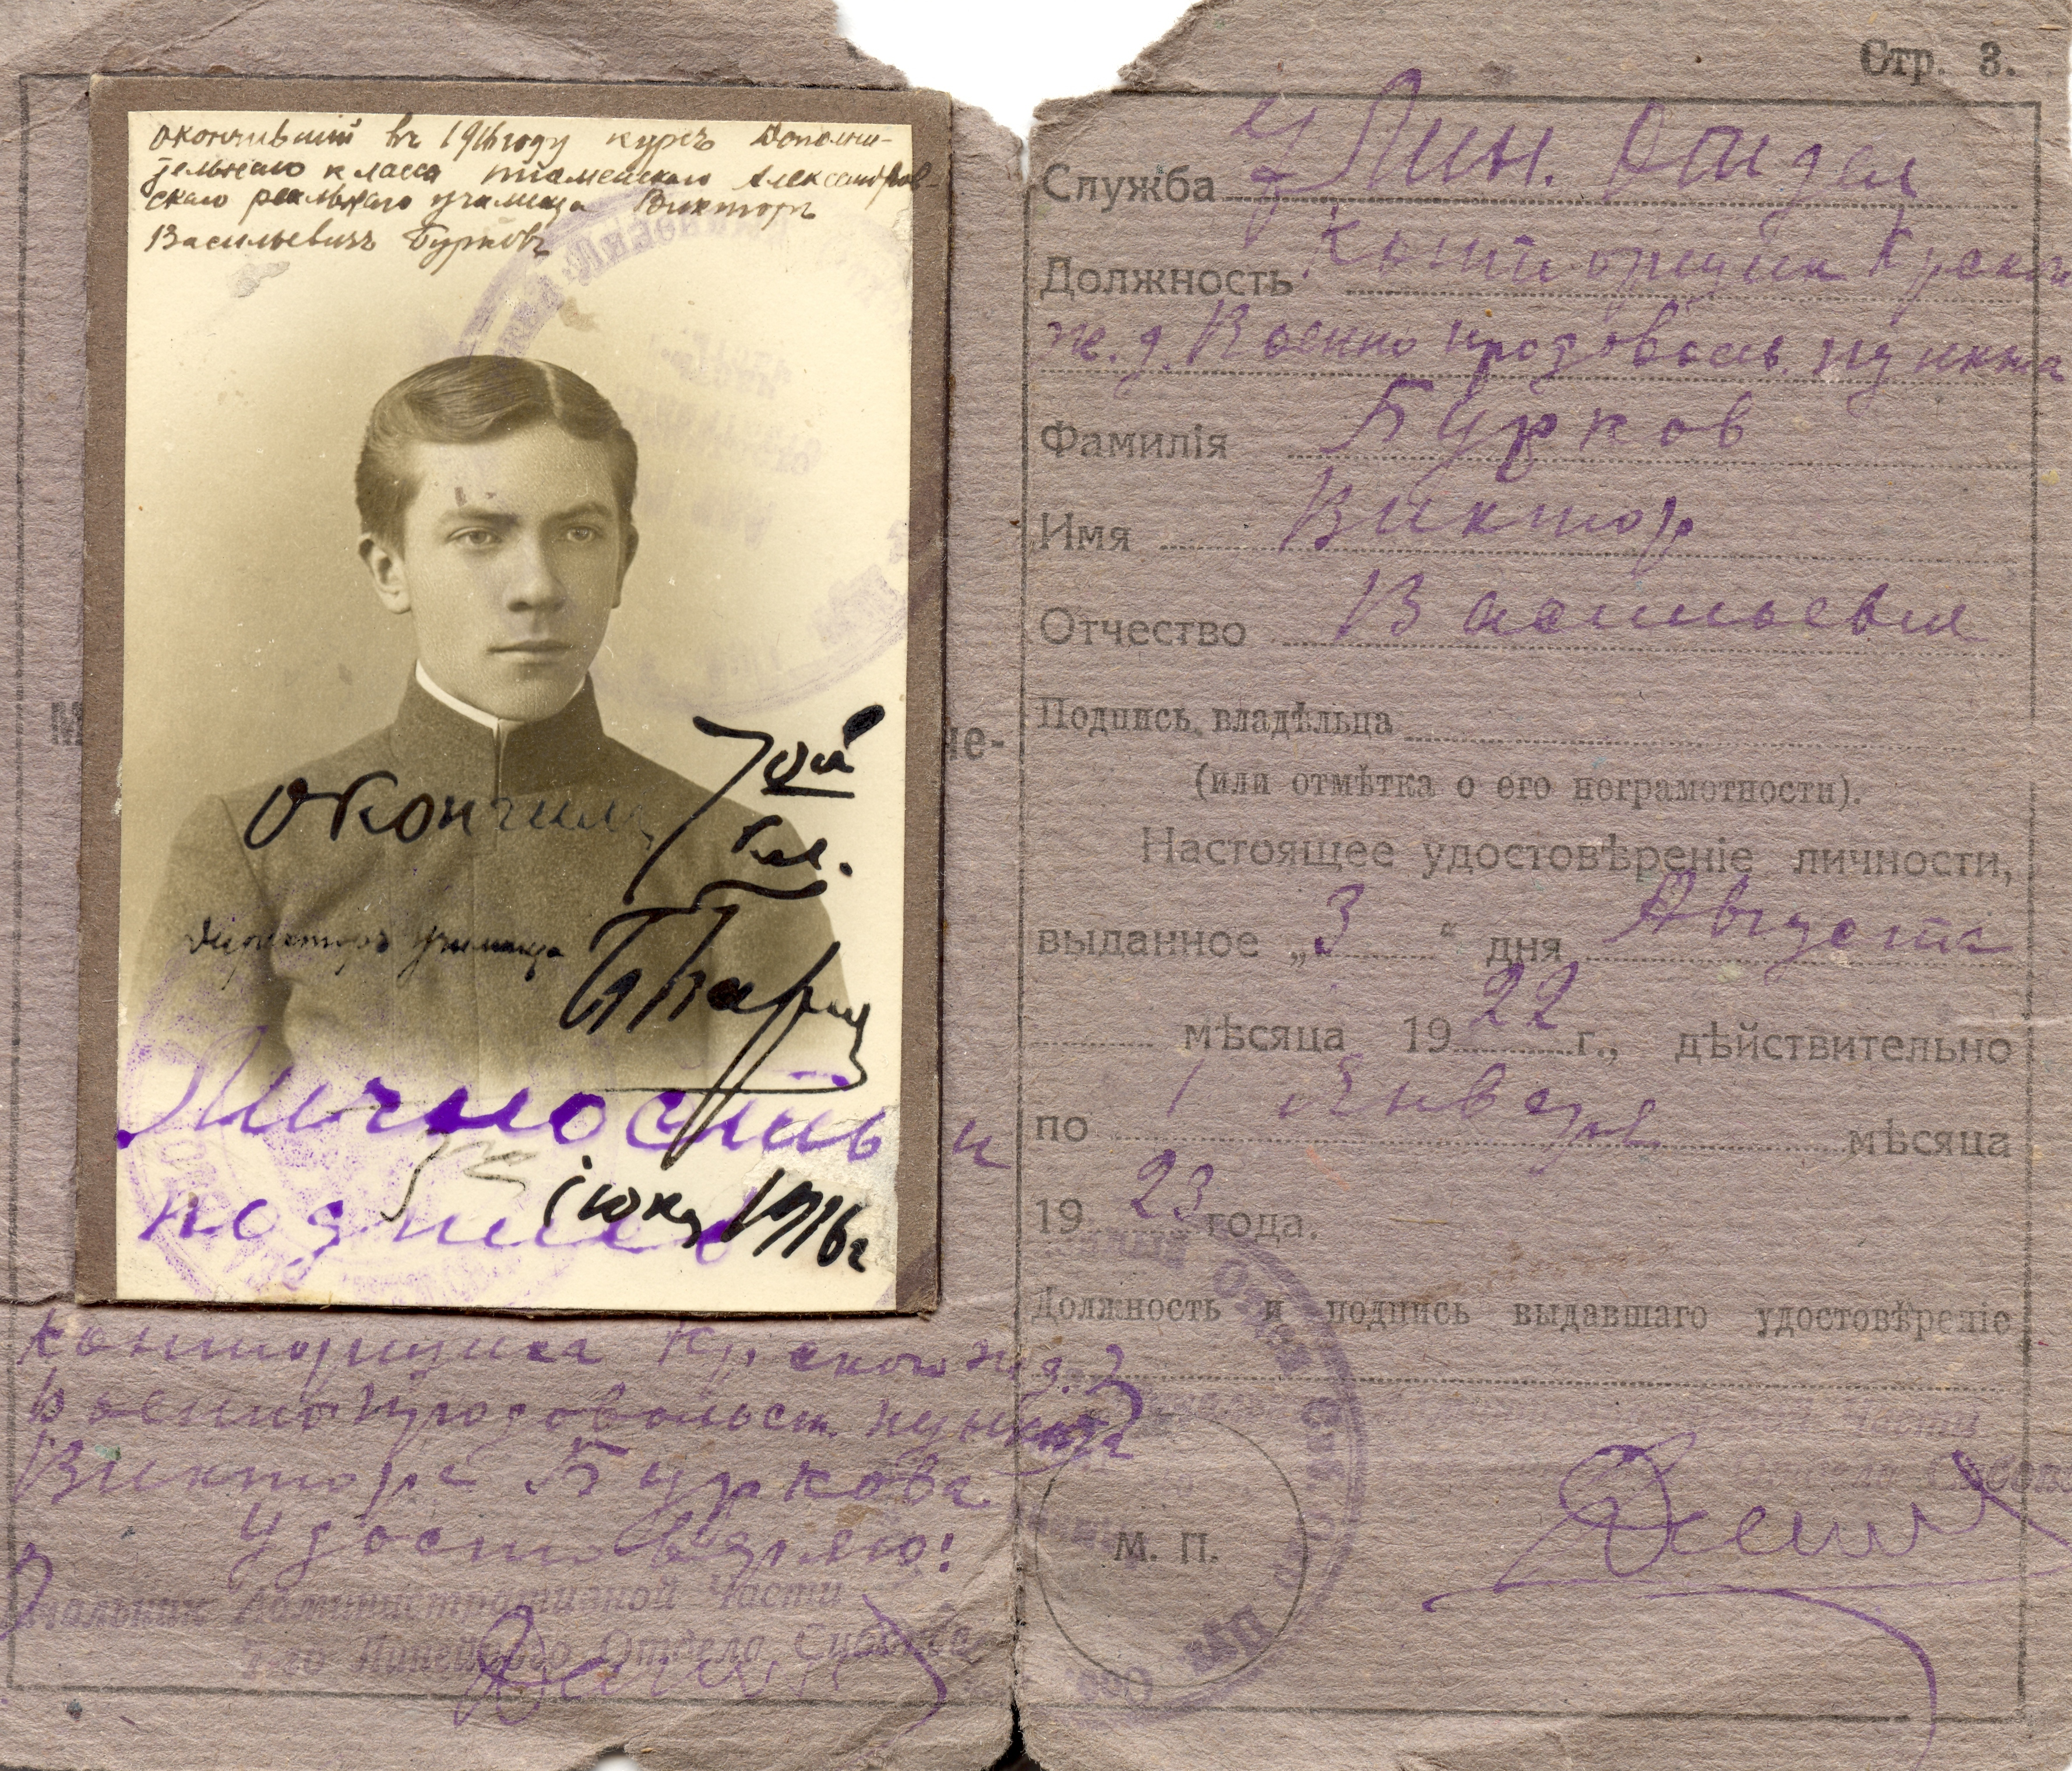 окончившiй въ 1916 году курсъ Дополни-
тельнаго класса тюменскаго Александров-
скаго реальнаго училища Викторъ
Васильевичъ Бурковъ
окончилъ
7ой
кл.
Директоръ училища
iюня 1916 г
Личность и
подпись
конторщика Кр. ского ж.д.
Военно продовольст. пункта
Виктора Буркова
Удостоверяю!
Административной Части
Линейного Отдела
Стр. 3.
Служба Лин. Отдел
Должность Конторщик
ж.д. Военно продоволь. пункта
Фамилiя Бурков
Имя Виктор
Отчество Васильевич
Подпись владѣльца
(или отмѣтка о его неграмотности).
Настоящее удостовѣренiе личности,
выданное „3“ дня Августа
мѣсяца 1922 г., дѣйствительно
по 1 Января мѣсяца
1923 года.
Должность и подпись выдавшаго удостовѣренiе
Части
М. П.